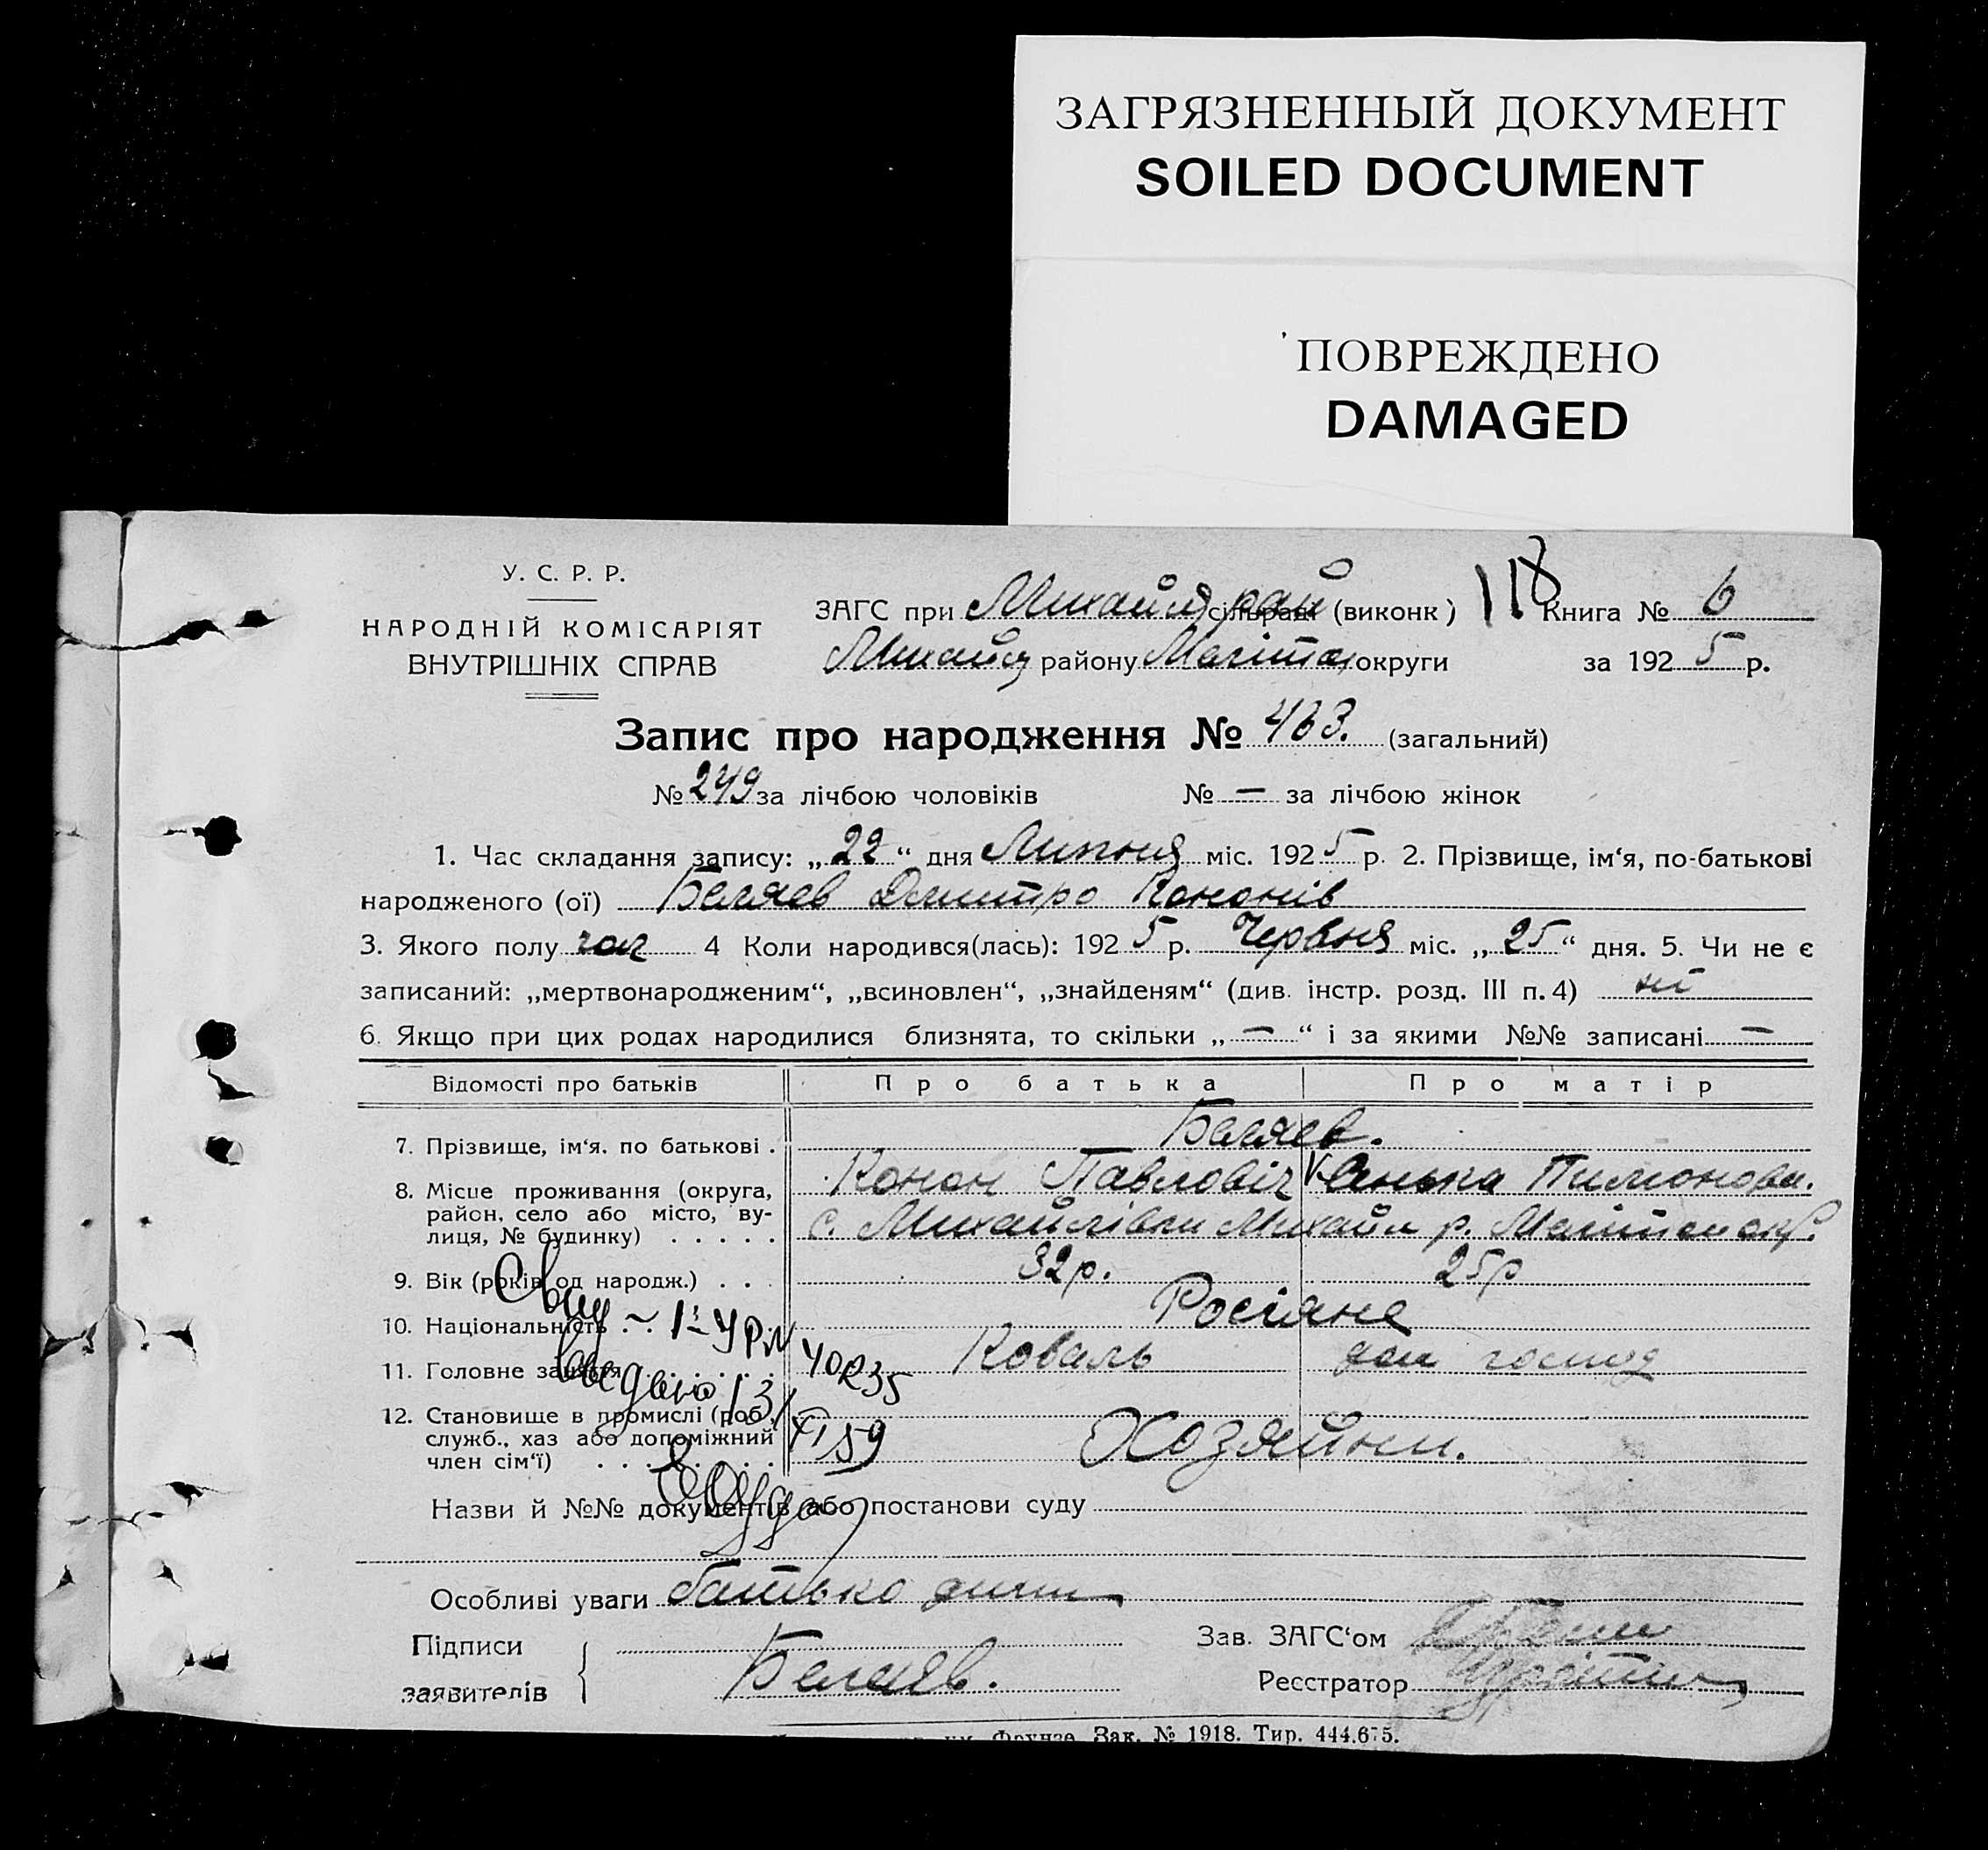 ЗАГРЯЗНЕННЫЙ ДОКУМЕНТ
SOILED DOCUMENT
ПОВРЕЖДЕНО
DAMAGED
У. С. Р. Р.
НАРОДНІЙ КОМІСАРІЯТ
ВНУТРІШНІХ СПРАВ
118
ЗАГС при Михайл рай сільраді (виконк) Книга № 6
Михайл району Меліт округи за 1925 р.
Запис про народження № 463. (загальний)
№ 249 за лічбою чоловіків № — за лічбою жінок
1. Час складання запису: „22“ дня Липня міс. 1925 р. 2. Прізвище, ім‘я, по-батькові
народженого (ої) Беляев Дмитро Кононів
3. Якого полу чол 4 Коли народився(лась): 1925 р. Червня міс. „25“ дня. 5. Чи не є
записаний: „мертвонародженим“, „всиновлен“, „знайденям“ (див. інстр. розд. III п. 4) ні
6. Якщо при цих родах народилися близнята, то скільки „—“ і за якими №№ записані —
Відомості про батьків Про батька Про матір
7. Прізвище, ім‘я. по батькові . Беляев.
Конон Павловіч Ганька Пимонови.
8. Місце проживання (округа,
район, село або місто, ву-
лиця, № будинку) . . . . . с. Михайлівки Михайл р. Меліт окр.
9. Вік (років од народж.) . . . 32 р. 25 р
10. Національність . . . Росіяне
11. Головне заняття . . . Коваль дом господ
12. Становище в промислі (роб.,
служб., хаз або допоміжний
член сім‘ї) . . . . Хозяйни.
XI 59
Назви й №№ документів або постанови суду
Особливі уваги батько дити
Підписи
заявителів Беляев.
Зав. ЗАГС‘ом
Реєстратор
Фрунзе Зак. № 1918. Тир. 444.675.